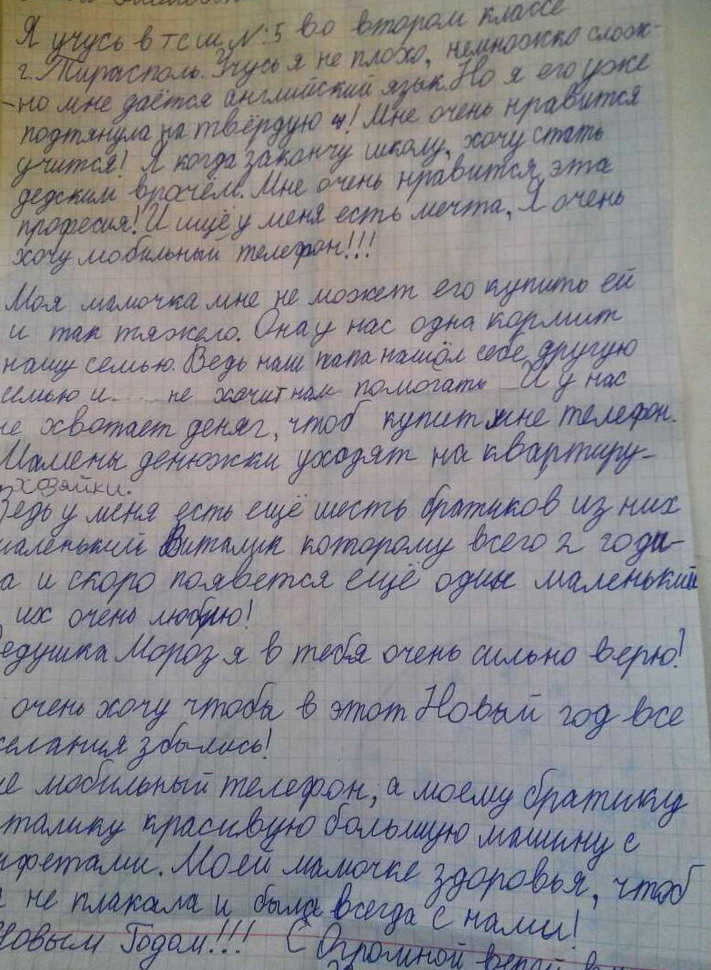 Я учусь в тсш №:5 во втором классе
г. Тирасполь. Учусь я не плохо, немножко слож-
-но мне даётся английский язык. Но я его уже
подтянула на твёрдую 4! Мне очень нравится
учится! Я когда закончу школу, хочу стать
дедским врачём. Мне очень нравится эта
професия! И ищё у меня есть мечта, Я очень
хочу мобильный телефон!!!
Моя мамочка мне не может его купить ей
и так тяжело. Она у нас одна кормит
нашу семью. Ведь наш папа нашол себе другую
семью и .... не хочит нам помогать И у нас
не хвотает деняг, чтоб купит мне телефон.
Мамены денюжки уходят на квартиру-
хозяйки.
Ведь у меня есть ещё шесть братиков из них
маленький Виталик которому всего 2 годи-
а и скоро появется ещё один маленький
их очень люблю!
Дедушка Мороз я в тебя очень сильно верю!
очень хочу чтобы в этот Новый год все
желания збылись!
не мобильный телефон, а моему братику
италику красивую большую машину с
нфетами. Моей мамочке здоровья, чтоб
не плакала и была всегда с нами!
Новым Годом!!! С Огромной верой в